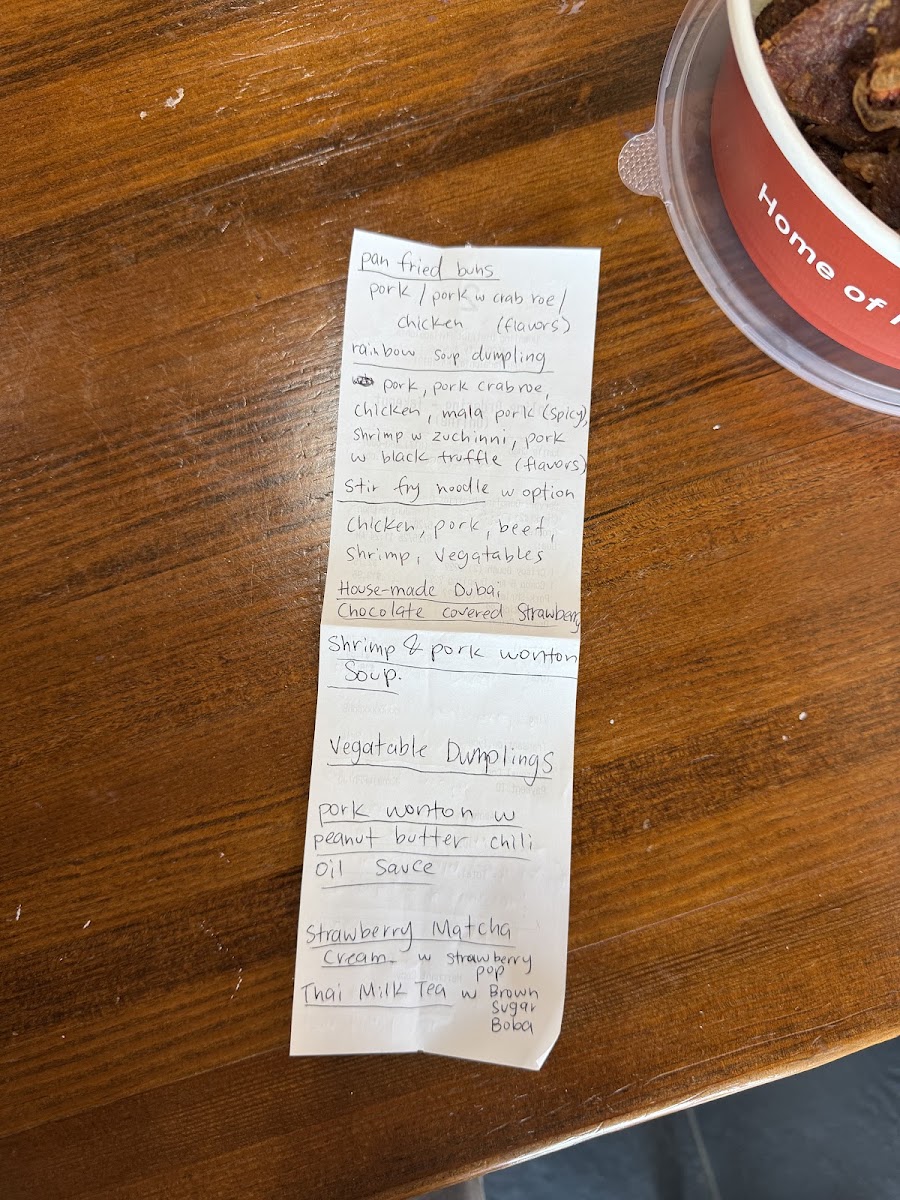 pan fried buns
pork / pork w crab roe /
chicken (flavors)
rainbow soup dumpling
pork, pork crab roe,
chicken, mala pork (spicy),
shrimp w zuchinni, pork
w black truffle (flavors)
stir fry noodle w option
chicken, pork, beef,
shrimp, vegatables
House-made Dubai
Chocolate covered Strawberry
Shrimp & pork wonton
Soup.
Vegatable Dumplings
pork wonton w
peanut butter chili
oil sauce
Strawberry Matcha
Cream w strawberry
pop
Thai Milk Tea w Brown
Sugar
Boba
Home of